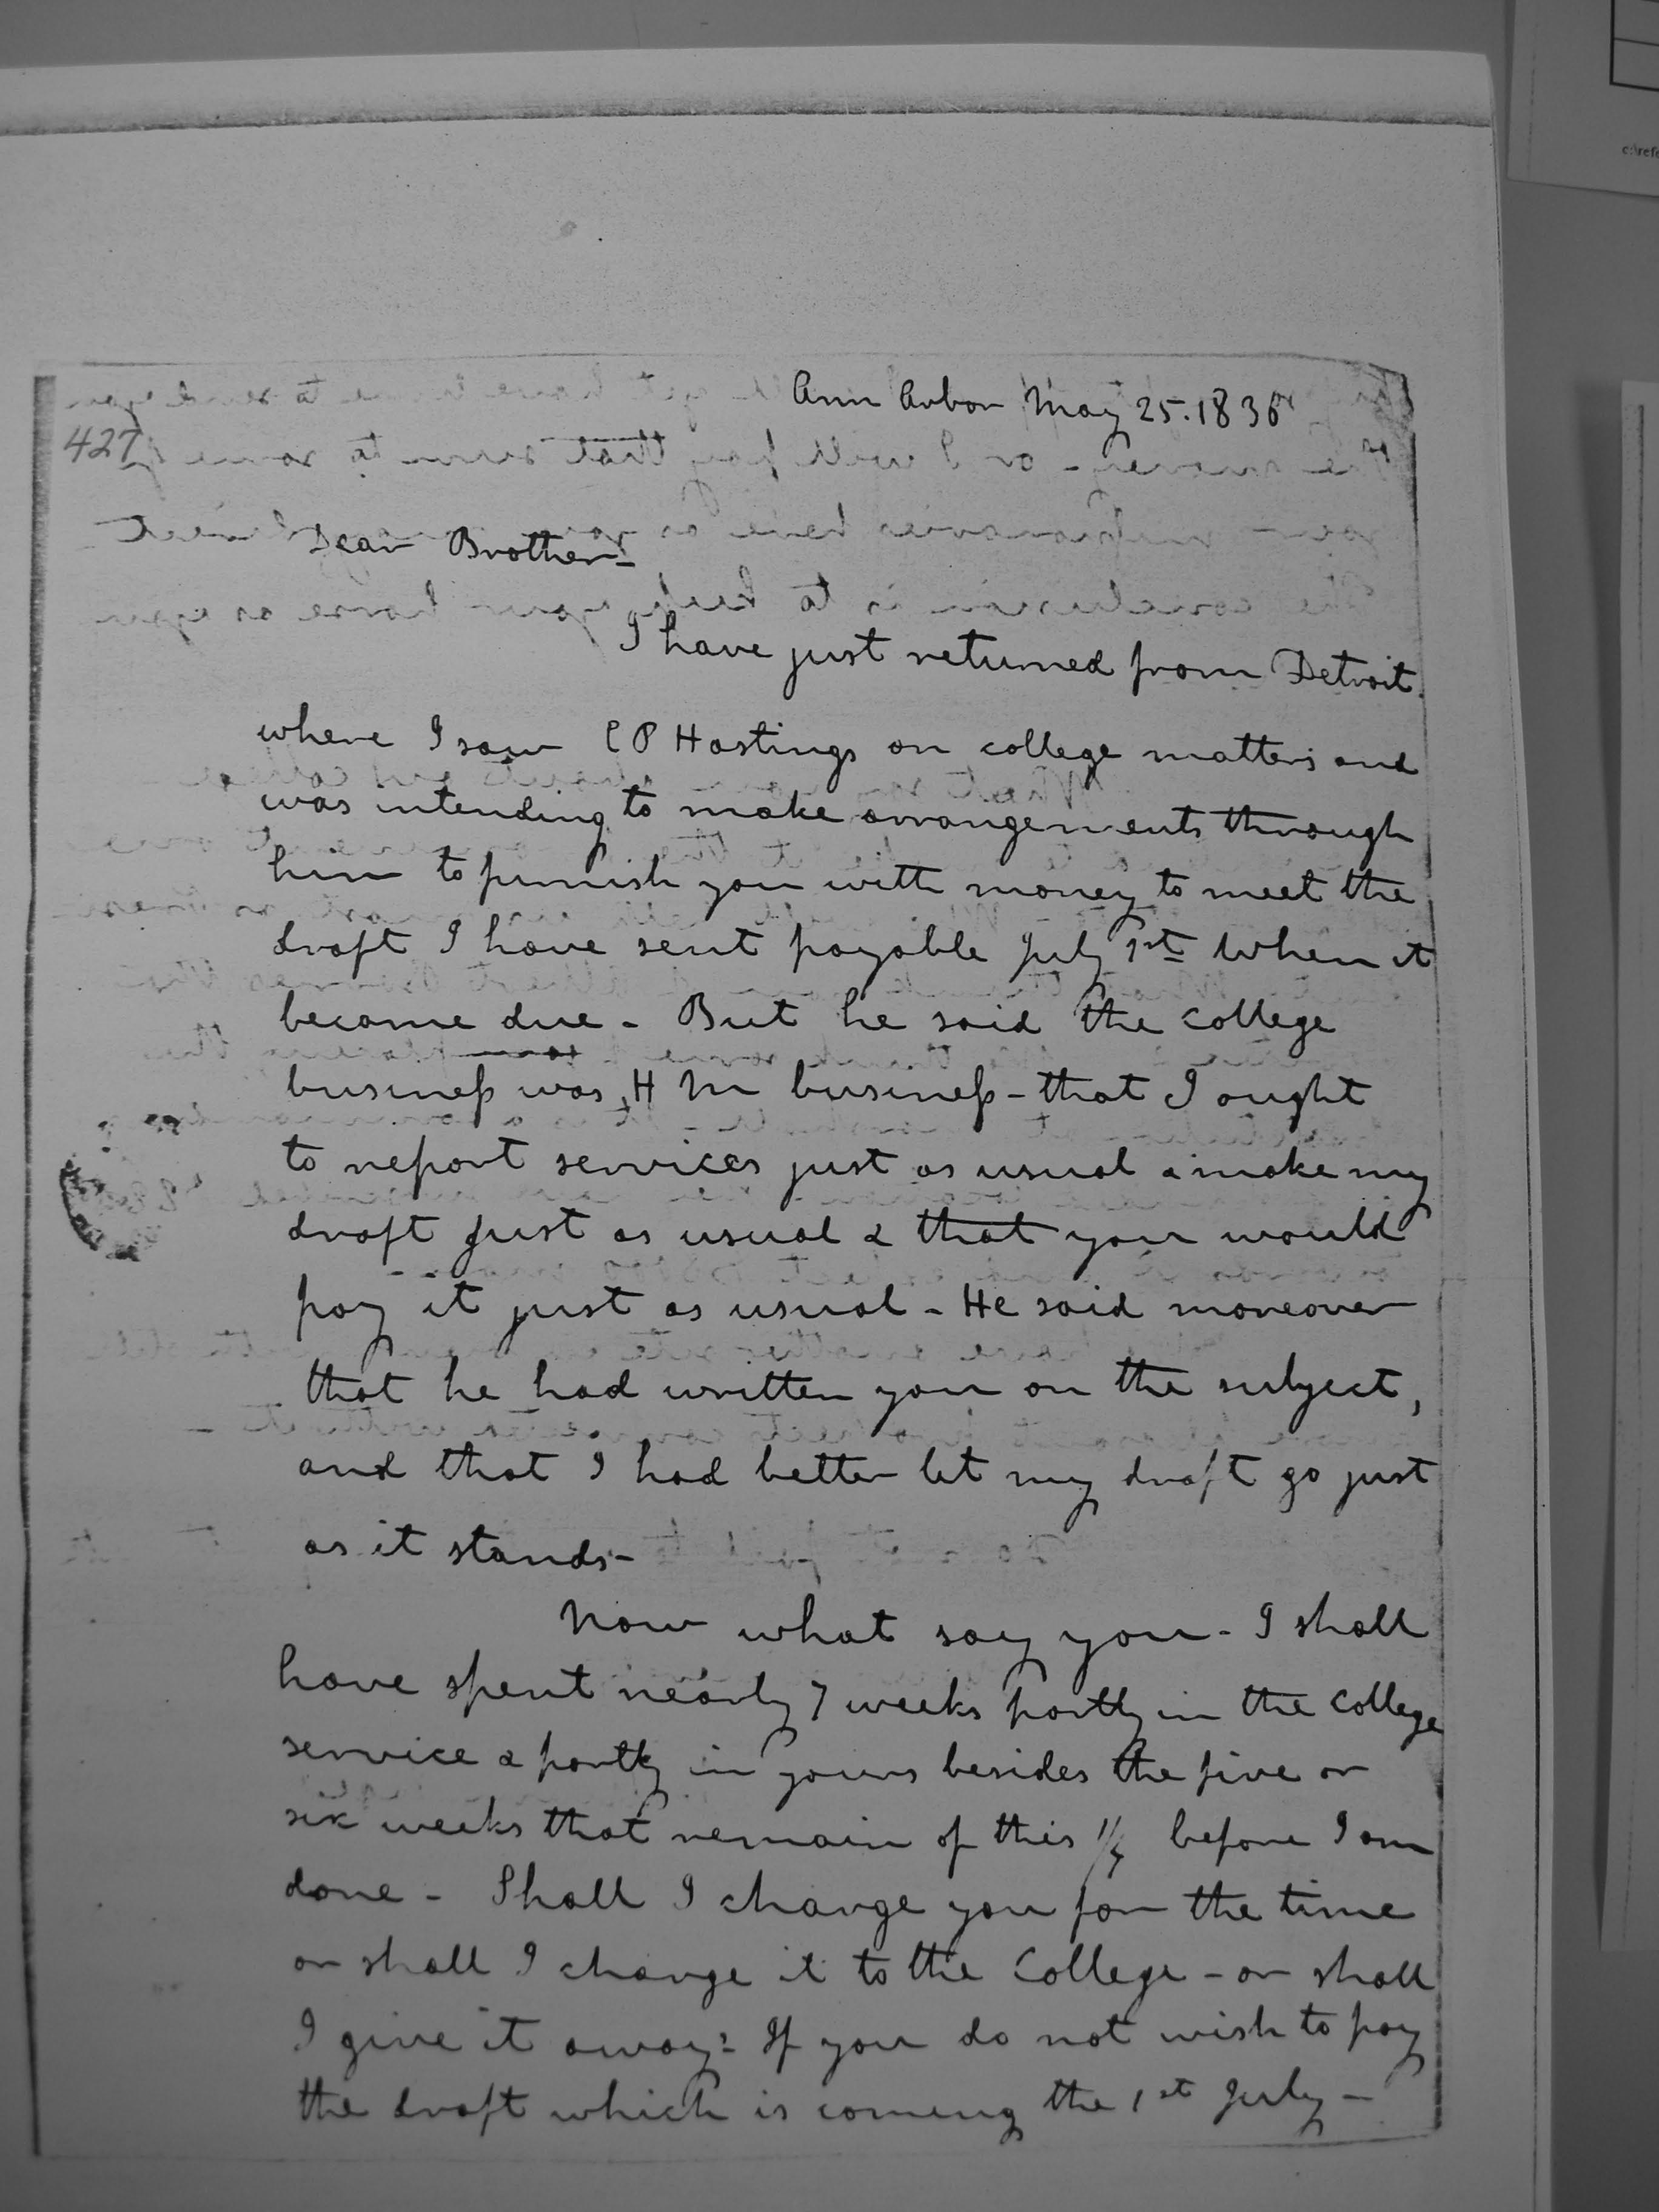 Ann Arbor May 25. 1836
427
Dear Brother—
I have just returned from Detroit
where I saw E P Hastings on college matters and
was intending to make arrangements through
him to furnish you with money to meet the
draft I have sent payable July 1st when it
became due - But he said the college
business was H M business - that I ought
to report services just as usual & make my
draft just as usual & that you would
pay it just as usual - He said moreover
that he had written you on the subject,
and that I had better let my draft go just
as it stands-
Now what say you - I shall
have spent nearly 7 weeks partly in the College
service & partly in yours besides the five or
six weeks that remain of this before I am
done - Shall I charge you for the time
or shall I charge it to the College - or shall
I give it away? If you do not wish to pay
the draft which is coming the 1st July -